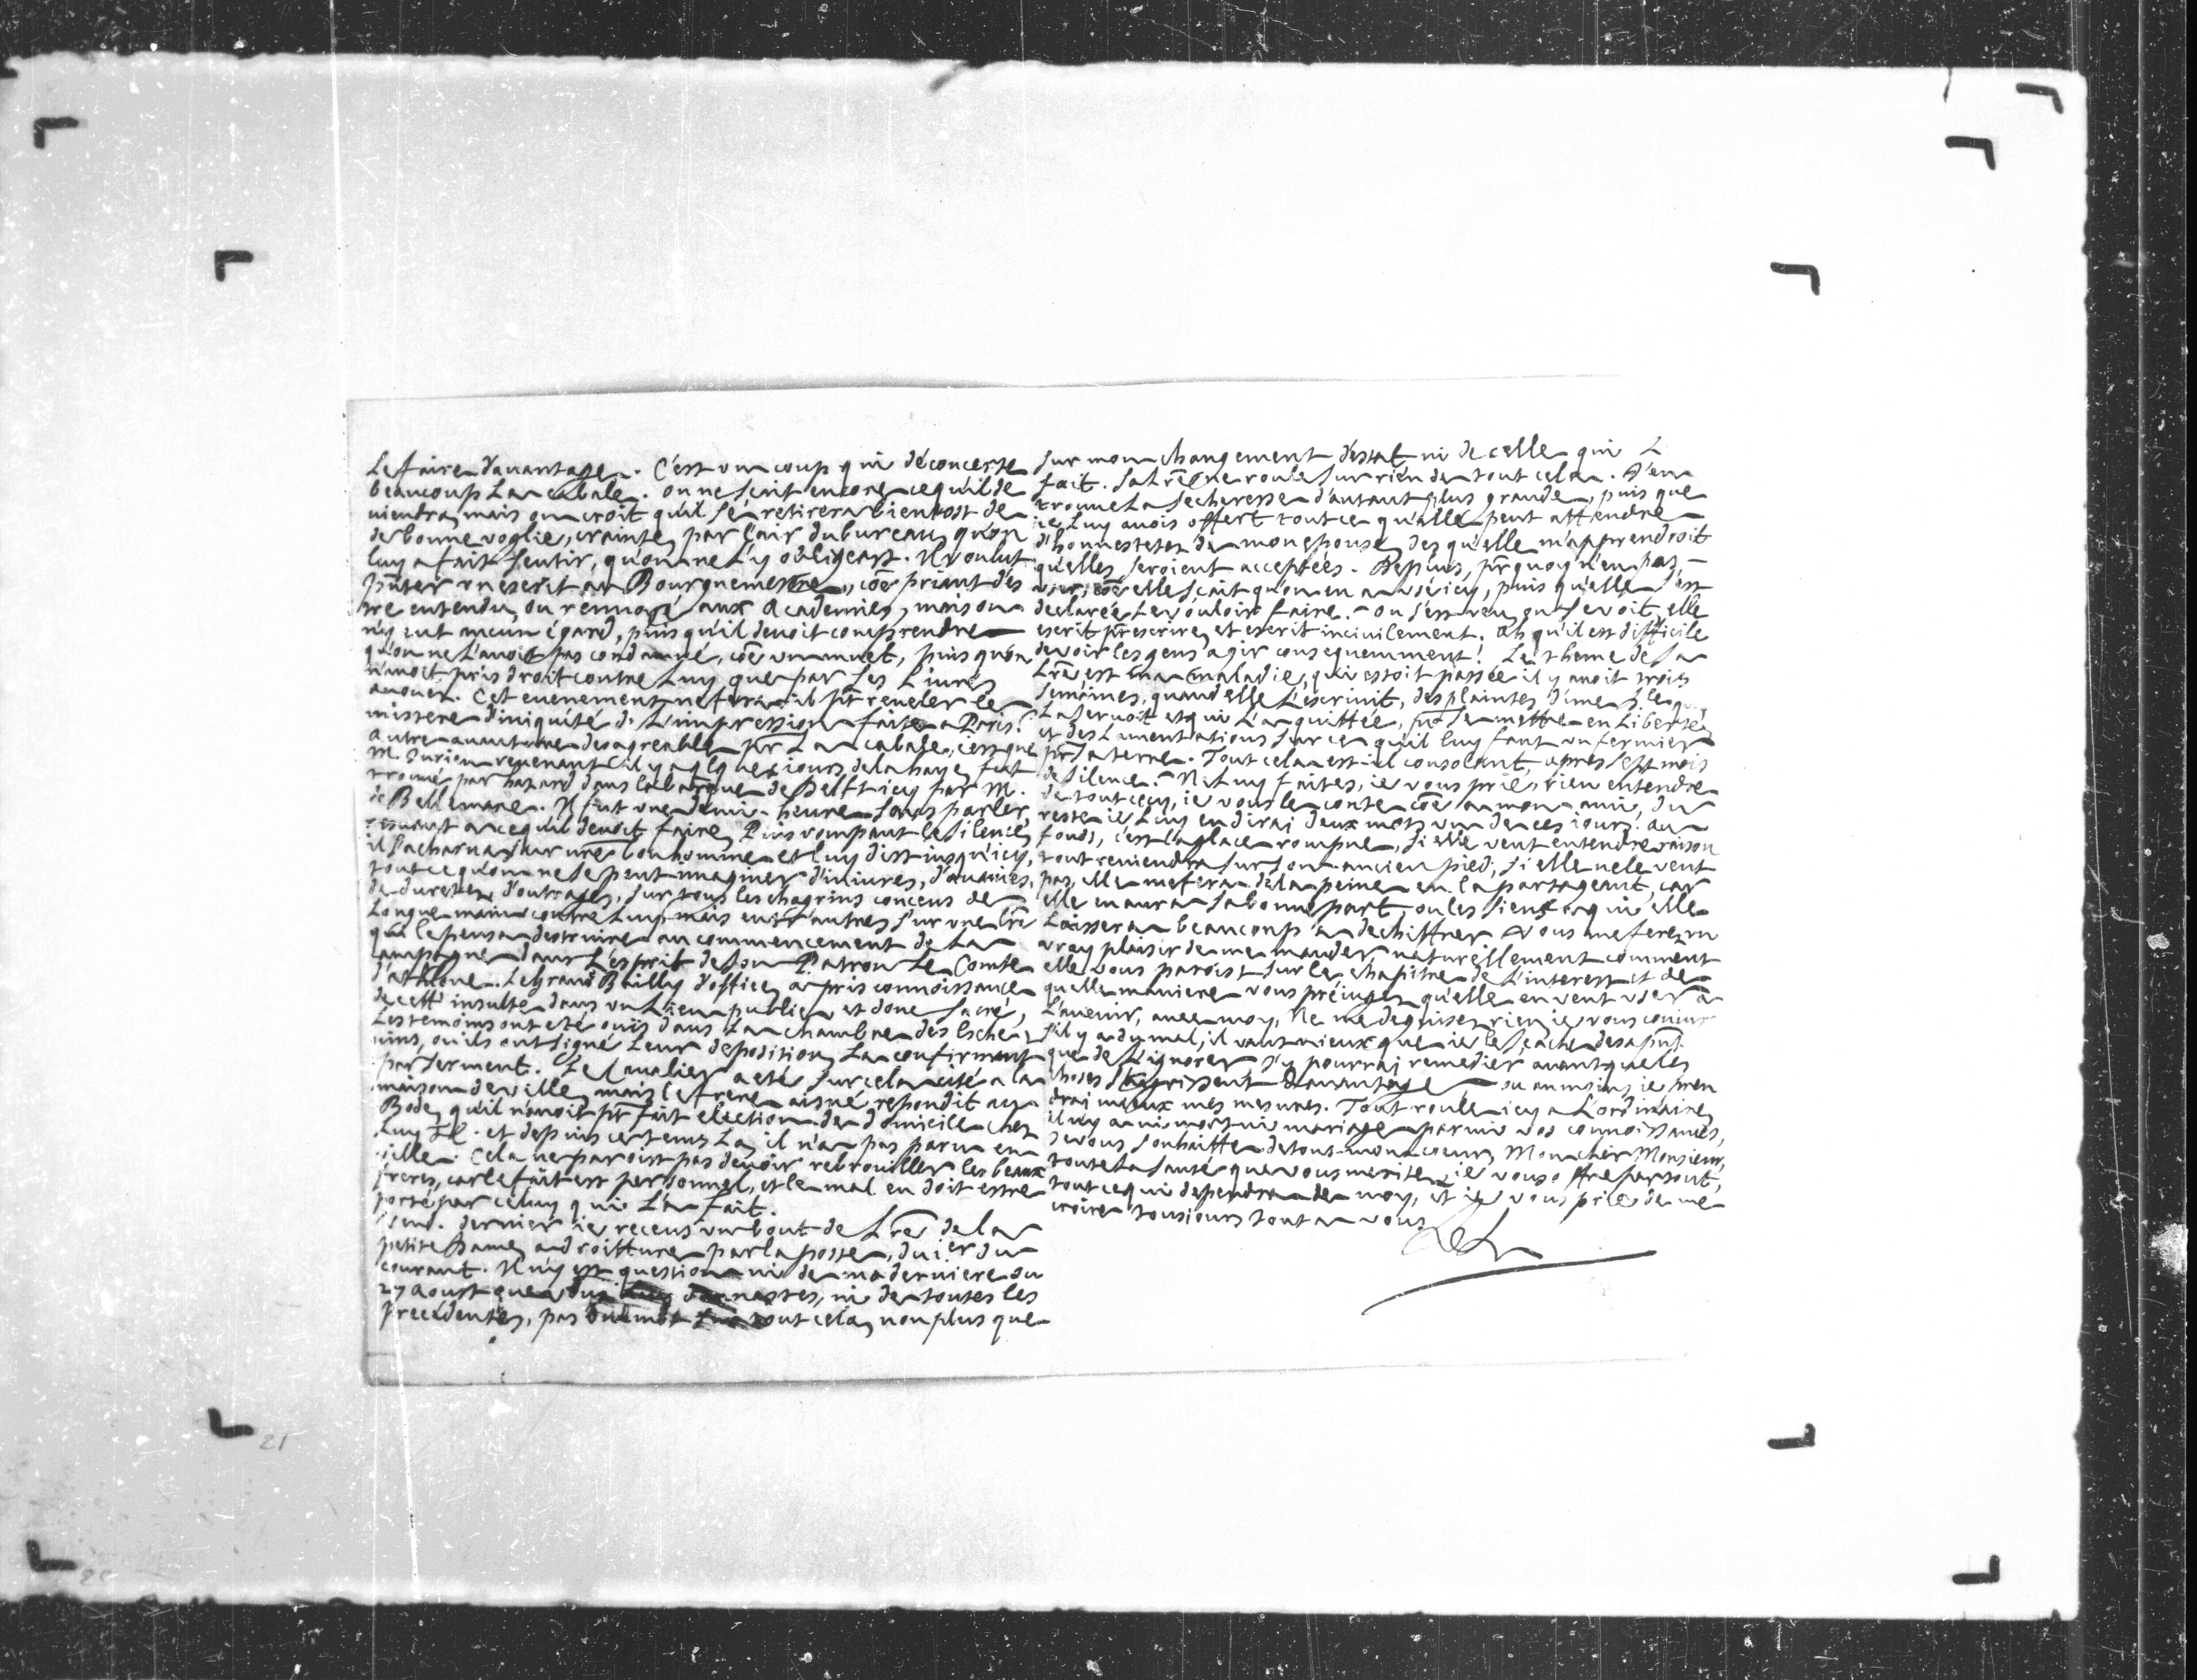 Le faire davantage. C'est un coup qui déconcerte
beaucoup La cabale. on ne scait encore ce qu'il de
viendra, mais on croit qu'il se retirera bientost de
de bonne voglie, crainte, par l'air du bureau, qu'on
luy a fait sentir, qu'on ne l'y obligeast. Il voulut
pñter un escrit au Bourguemestre, cõe priant d'es
tre entendu, ou renvoyé aux Academies, mais on
n'y eut aucun égard, puis qu'il devoit comprendre
qu'on ne l'avoit pas condamné, cõe un muet, puis qu'on
n'avoit pris droit contre Luy que par ses Livres
avouez. Cet evenement ne fera-t-il pt reveler le
mistere d'iniquité de L'impression faite a Paris?
Autre avanture desagreable pr La cabale, c'est que
M. Jurieu revenant il y a qlques jours de la haye, fut
trouvé par hazard dans la barque de Delft icy par M.
de Bellemare. Il fut une demi-heure sans parler,
resvant a ce qu'il devoit faire, Puis rompant le silence,
il s'acharna sur nre bon homme et luy dist jusqu'icy,
tout ce qu'on ne se peut imaginer d'iniures, d'avanies,
de duretez, d'outrages, sur tous les chagrins conceus de
Longue main contre Luy, mais entr'autres sur une Lre
qui le pensa destruire au commencement de La
campagne dans L'esprit de son Patron Le Comte
d'athlone. Le grand Bailly d'office, a pris connoissance
de cett' insulte dans un Lieu public, et donc sacré,
Les temoins ont eté ouïs dans La chambre des Esche-
vins, où ils ont signé Leur deposition, La confirmant
par serment. Le Cavalier a eté sur cela cité a la
maison de ville, mais le frere aisné repondit au
Bode, qu'il n'avoit pt fait election de domicile chez
Luy et depuis ce tems La, il n'a pas paru en
ville. Cela ne paroist pas devoir rebrouiller les beaux
freres, car le fait est personnel, et le mal en doit estre
porté par celuy qui L'a fait.
Vend. dernier ie receus un bout de Lre de la
petite Dame, a droitture par la poste, du 1er du
courant. Il n'y est question ni de ma derniere du
27 Aoust que vous, ni de toutes les
precedentes, pas un mot tout cela, non plus que
sur mon changement d'estat ni de celle qui L
fait. Sa Lre ne roule sur rien de tout cela. J'en
trouve La secheresse d'autant plus grande, puis que
ie Luy avois offert tout ce qu'elle peut attendre
d'honnestetez de mon epouse, des qu'elle m'apprendroit
qu'elles seroient acceptées. Depuis, pr quoy n'en pas
user, cõe elle scait qu'on en a usé icy, puis qu'elle s'est
declarée Le vouloir faire. ou s'est veu, on se voit, elle
escrit pr escrire, et escrit incivilement. Ah qu'il est difficile
de voir les gens agir consequemment! Le theme de sa
Lre, est ma maladie, qui estoit passée il y avoit trois
semaines, quand elle L'escrivit, des plaintes d'une
La servoit et qui L'a quittée, pr se mettre en Liberté,
et des Lamentations sur ce qu'il luy faut un fermier
pr sa terre. Tout cela est-il consolant, apres sept mois
de silence? Ne Luy faites, ie vous prie, rien entendre
de tout cecy, ie vous le conte cõe a mon ami, du
reste ie Luy en dirai deux mots un de ces iours. Au
fonds, c'est la glace rompue, si elle veut entendre raison
tout reviendra sur son ancien pied, si elle ne le veut
pas, elle me fera de la peine en la partageant, car
elle en aura sa bonne part, ou les siens a qui elle
Laissera beaucoup a dechiffrer. Vous me ferez un
vray plaisir de me mander naturellement comment
elle vous paroist sur le chapitre de L'interest et de
quelle maniere vous préiugez qu'elle en veut user a
L'avenir, avec moy. Ne me deguisez rien ie vous coniure
s'il y a du mal, il vaut mieux que ie le scache des a pñt
que de L'ignorer, j'y pourrai remedier avant que les
choses s'aigrissent davantage ou au moins ie pren
drai mieux mes mesures. Tout roule icy a L'ordinaire,
il n'y a ni mort ni mariage parmi vos connoissances,
Je vous souhaitte de tout mon coeur, Mon cher Monsieur,
toute La santé que vous meritez, ie vous offre par tout,
tout ce qui dependra de moy, et ie vous prie de me
croire tousiours tout a vous
21